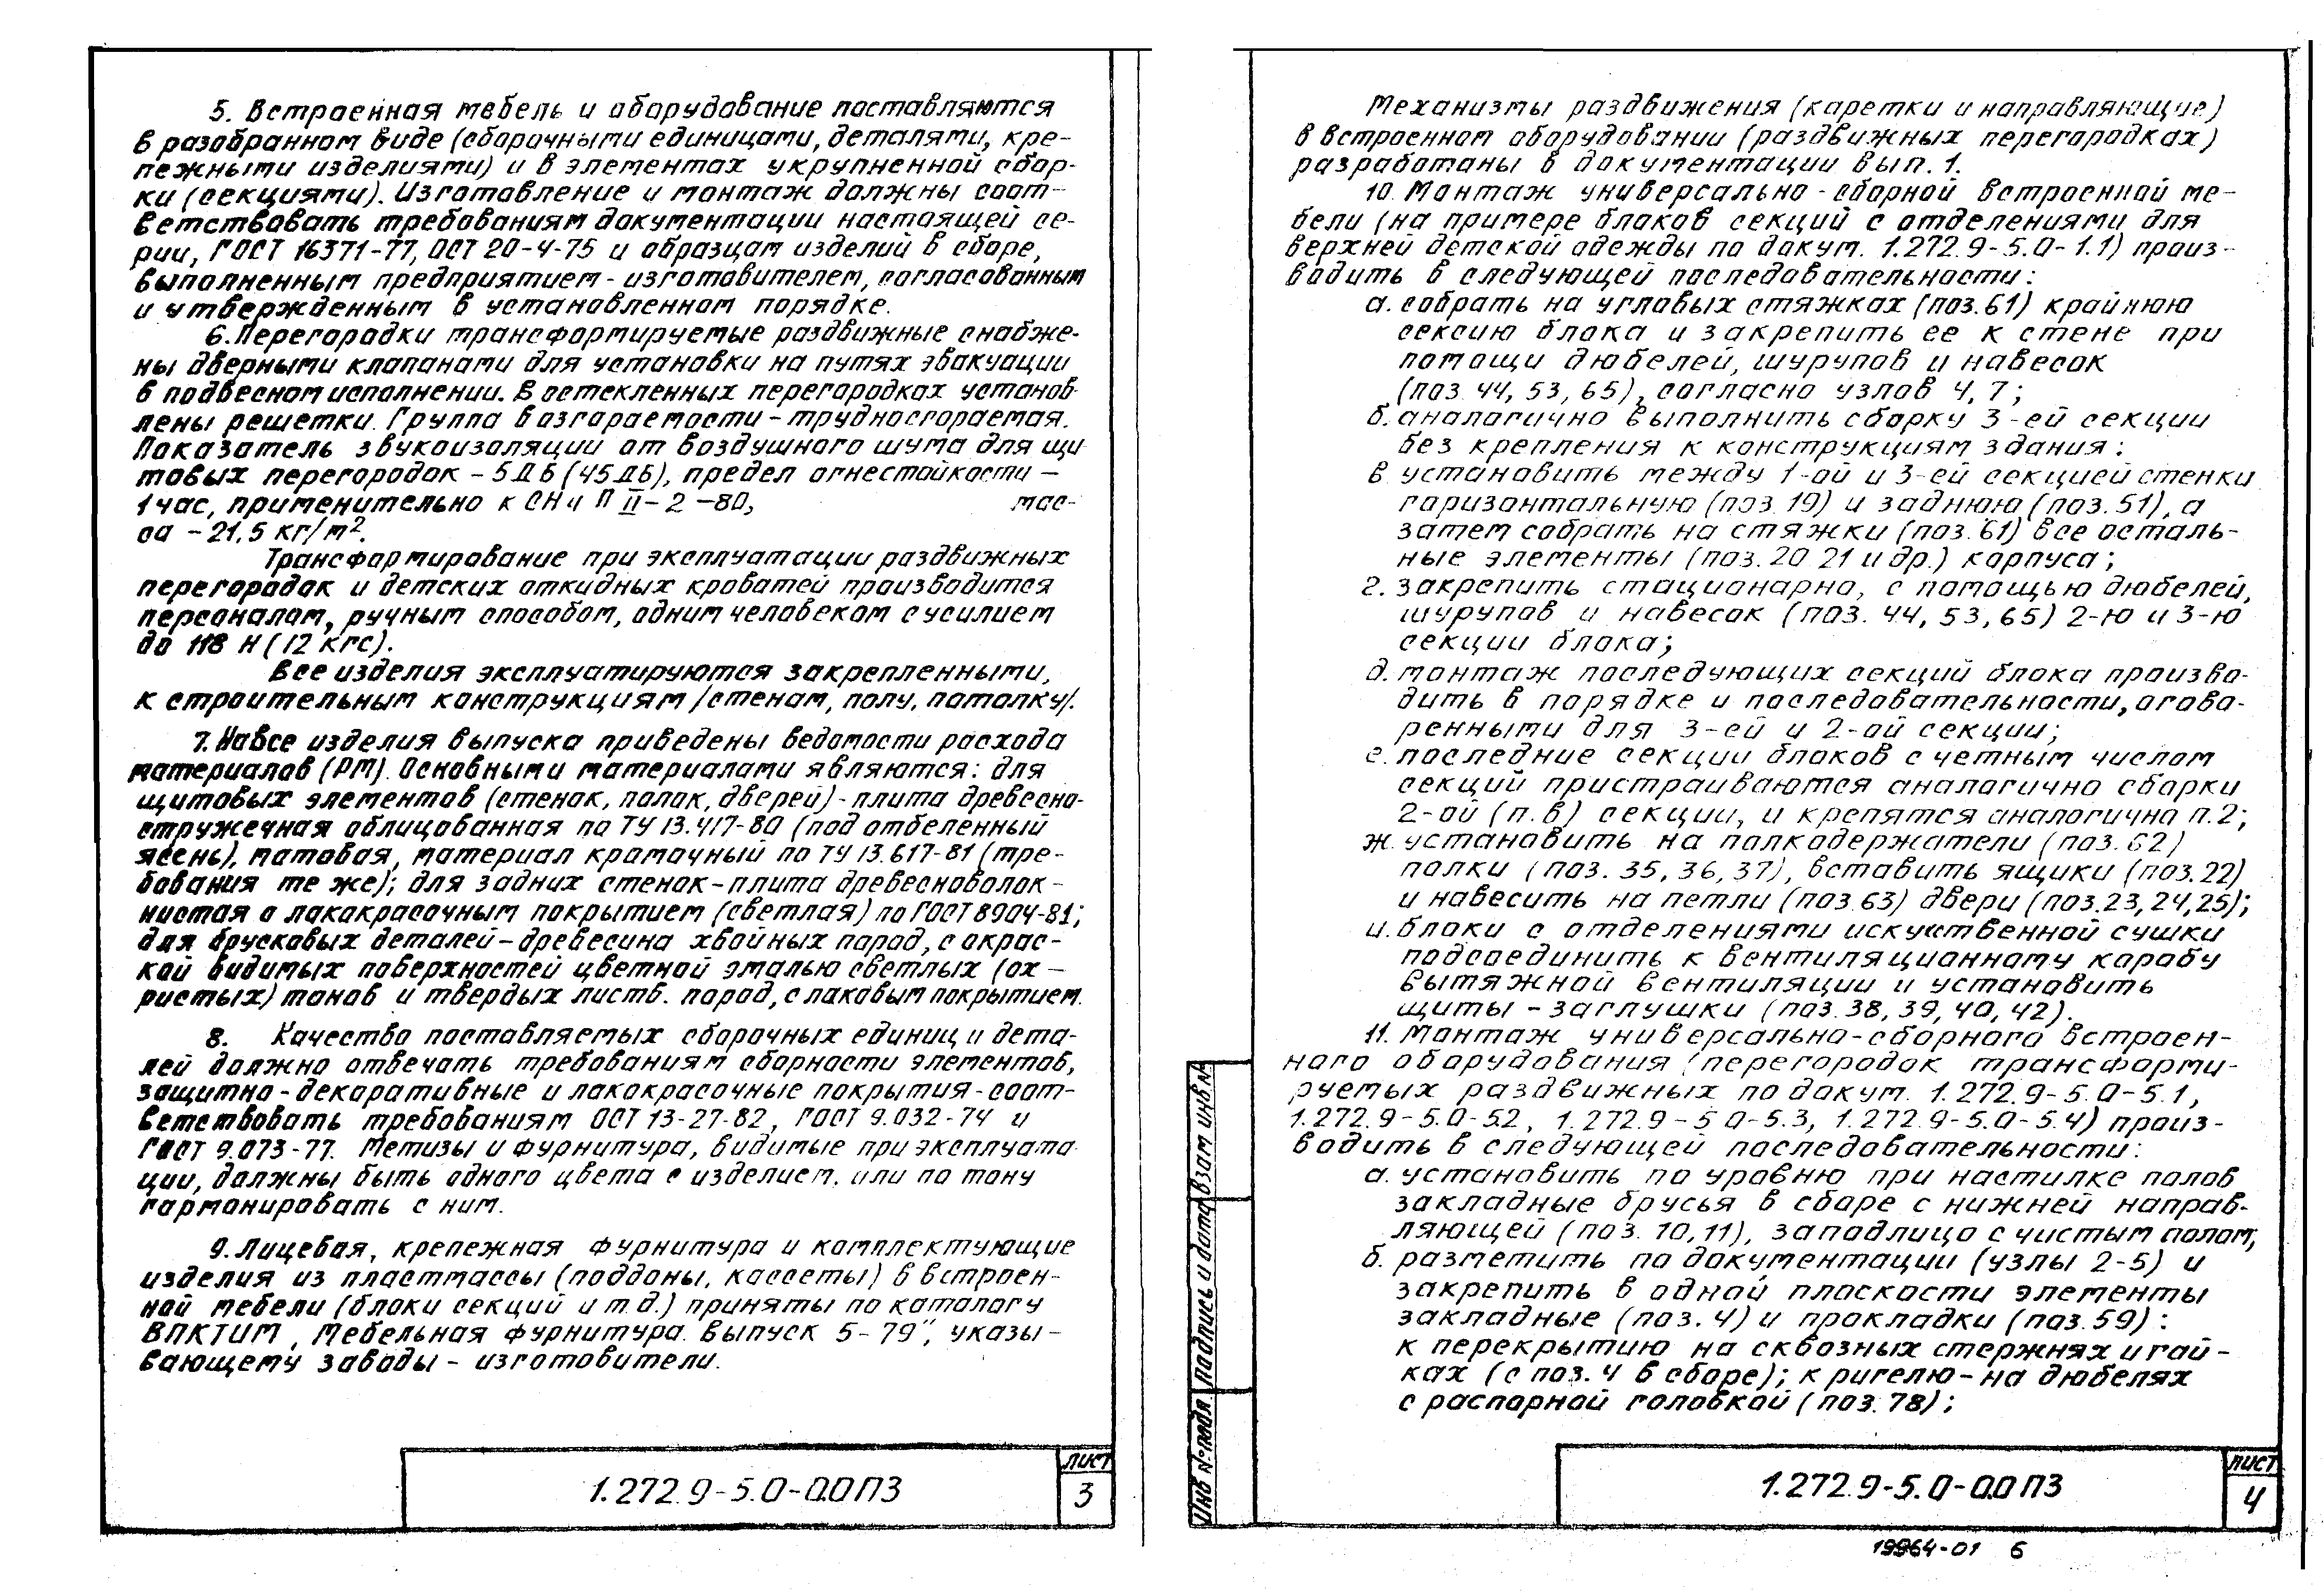 5. Встроенная мебель и оборудование поставляются
в разобранном виде (сборочными единицами, деталями, кре-
пежными изделиями) и в элементах укрупненной сбор-
ки (секциями). Изготовление и монтаж должны соот-
ветствовать требованиям документации настоящей се-
рии, ГОСТ 16371-77, ОСТ 20-4-75 и образцам изделий в сборе,
выполненным предприятием-изготовителем, согласованным
и утвержденным в установленном порядке.
6. Перегородки трансформируемые раздвижные снабже-
ны дверными клапанами для установки на путях эвакуации
в подвесном исполнении. В остекленных перегородках установ-
лены решетки. Группа возгораемости - трудносгораемая.
Показатель звукоизоляции от воздушного шума для щи-
товых перегородок - 5ДБ (45ДБ), предел огнестойкости -
1 час, применительно к СНиП II-2-80, мас-
са - 21.5 кг/м².
Трансформирование при эксплуатации раздвижных
перегородок и детских откидных кроватей производится
персоналом, ручным способом, одним человеком с усилием
до 118 Н (12 кгс).
Все изделия эксплуатируются закрепленными,
к строительным конструкциям /стенам, полу, потолку/.
7. На все изделия выпуска приведены ведомости расхода
материалов (РМ). Основными материалами являются: для
щитовых элементов (стенок, полок, дверей) - плита древесно-
стружечная облицованная по ТУ 13.417-80 (под отбеленный
ясень), матовая, материал кромочный по ТУ 13.617-81 (тре-
бования те же); для задних стенок - плита древесноволок-
нистая с лакокрасочным покрытием (светлая) по ГОСТ 8904-81;
для брусковых деталей - древесина хвойных пород, с окрас-
кой видимых поверхностей цветной эмалью светлых (ох-
ристых) тонов и твердых листв. пород, с лаковым покрытием.
8. Качество поставляемых сборочных единиц и дета-
лей должно отвечать требованиям сборности элементов,
защитно-декоративные и лакокрасочные покрытия - соот-
ветствовать требованиям ОСТ 13-27-82, ГОСТ 9.032-74 и
ГОСТ 9.073-77. Метизы и фурнитура, видимые при эксплуата-
ции, должны быть одного цвета с изделием, или по тону
гармонировать с ним.
9. Лицевая, крепежная фурнитура и комплектующие
изделия из пластмассы (поддоны, кассеты) в встроен-
ной мебели (блоки секций и т.д.) приняты по каталогу
ВПКТИМ „Мебельная фурнитура. Выпуск 5-79", указы-
вающему заводы - изготовители.
1.272.9-5.0-0.0 ПЗ
лист
3
Механизмы раздвижения (каретки и направляющие)
в встроенном оборудовании (раздвижных перегородках)
разработаны в документации вып. 1.
10. Монтаж универсально-сборной встроенной ме-
бели (на примере блоков секций с отделениями для
верхней детской одежды по докум. 1.272.9-5.0-1.1) произ-
водить в следующей последовательности:
а. собрать на угловых стяжках (поз. 61) крайнюю
сексию блока и закрепить ее к стене при
помощи дюбелей, шурупов и навесок
(поз. 44, 53, 65), согласно узлов 4, 7;
б. аналогично выполнить сборку 3-ей секции
без крепления к конструкциям здания:
в. установить между 1-ой и 3-ей секцией стенки
горизонтальную (поз. 19) и заднюю (поз. 51), а
затем собрать на стяжки (поз. 61) все осталь-
ные элементы (поз. 20. 21 и др.) корпуса;
г. закрепить стационарно, с помощью дюбелей,
шурупов и навесок (поз. 44, 53, 65) 2-ю и 3-ю
секции блока;
д. монтаж последующих секций блока произво-
дить в порядке и последовательности, огово-
ренными для 3-ей и 2-ой секции;
е. последние секции блоков с четным числом
секций пристраиваются аналогично сборки
2-ой (п. в) секции, и крепятся аналогично п. г;
ж. установить на полкодержатели (поз. 62)
полки (поз. 35, 36, 37), вставить ящики (поз. 22)
и навесить на петли (поз. 63) двери (поз. 23, 24, 25);
и. блоки с отделениями искусственной сушки
подсоединить к вентиляционному коробу
вытяжной вентиляции и установить
щиты - заглушки (поз. 38, 39, 40, 42).
11. Монтаж универсально-сборного встроен-
ного оборудования (перегородок трансформи-
руемых раздвижных по докум. 1.272.9-5.0-5.1,
1.272.9-5.0-5.2, 1.272.9-5.0-5.3, 1.272.9-5.0-5.4) произ-
водить в следующей последовательности:
а. установить по уровню при настилке полов
закладные брусья в сборе с нижней направ-
ляющей (поз. 10, 11), заподлицо с чистым полом;
б. разметить по документации (узлы 2-5) и
закрепить в одной плоскости элементы
закладные (поз. 4) и прокладки (поз. 59):
к перекрытию на сквозных стержнях и гай-
ках (с поз. 4 в сборе); к ригелю - на дюбелях
с распорной головкой (поз. 78);
Инв № подл
Подпись и дата
Взам инв.№
1.272.9-5.0-0.0 ПЗ
лист
4
19964-01 6